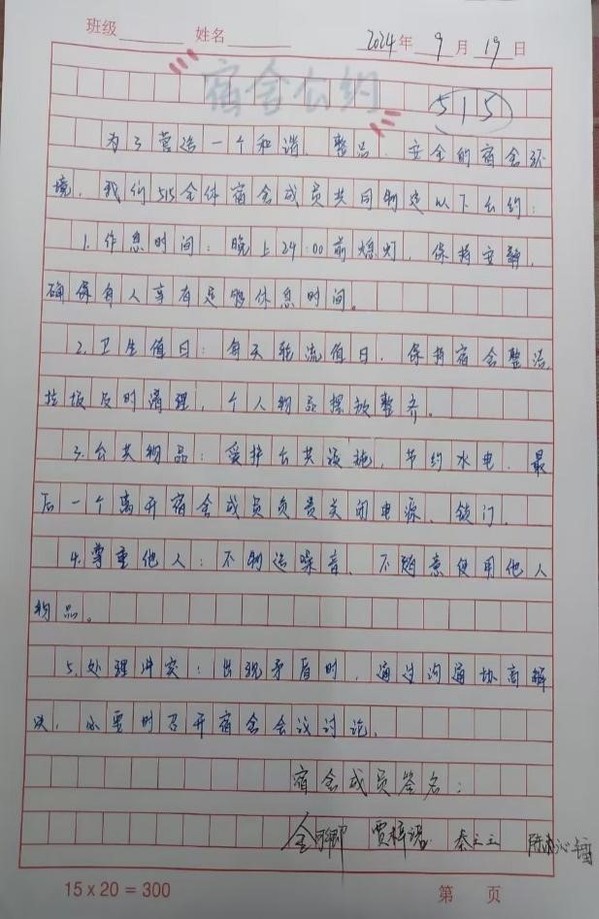 班级 姓名 2024年9月19日
宿舍公约
515
为了营造一个和谐、整品、安全的宿舍环
境,我们515全体宿舍成员共同制定以下公约:
1.作息时间:晚上24:00前熄灯,保持安静,
确保每人享有足够休息时间。
2.卫生值日:每天轮流值日,保持宿舍整洁,
垃圾及时清理,个人物品摆放整齐。
3.公共物品:爱护公共设施,节约水电,最
后一个离开宿舍成员负责关闭电源、锁门。
4.尊重他人:不制造噪音,不随意使用他人
物品。
5.处理冲突:出现矛盾时,通过沟通协商解
决,必要时召开宿舍会议讨论。
宿舍成员签名:
贾梓 秦立立 陈
15×20=300 第 页